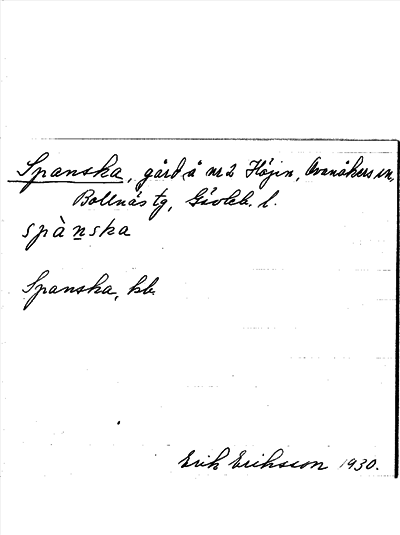 Spanska, gård å nr 2 Höjen, Ovanåkers sn,
Bollnäs tg, Gävleb. l.
spànska
Spanska, kb.
Erik Eriksson 1930.